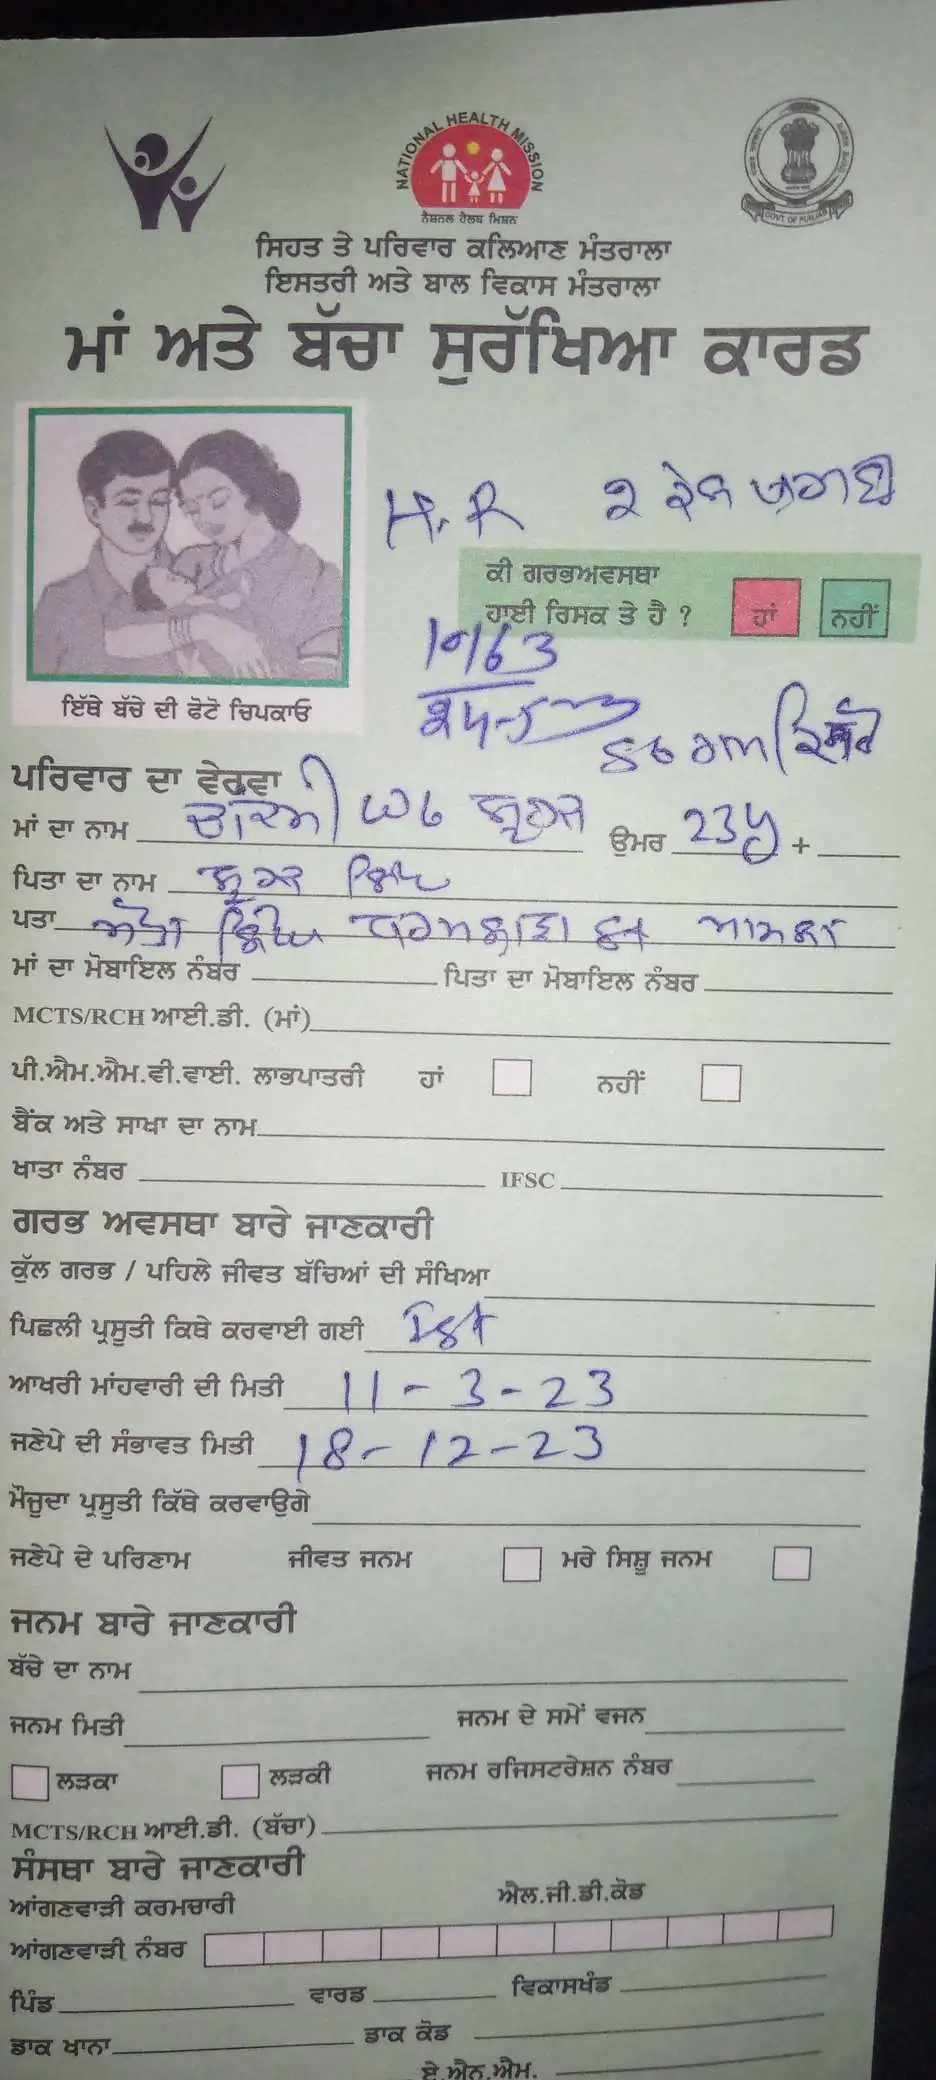 NATIONAL HEALTH MISSION
ਨੈਸ਼ਨਲ ਹੈਲਥ ਮਿਸ਼ਨ
GOVT OF PUNJAB
ਸਿਹਤ ਤੇ ਪਰਿਵਾਰ ਕਲਿਆਣ ਮੰਤਰਾਲਾ
ਇਸਤਰੀ ਅਤੇ ਬਾਲ ਵਿਕਾਸ ਮੰਤਰਾਲਾ
ਮਾਂ ਅਤੇ ਬੱਚਾ ਸੁਰੱਖਿਆ ਕਾਰਡ
H.R 2
ਕੀ ਗਰਭਅਵਸਥਾ
ਹਾਈ ਰਿਸਕ ਤੇ ਹੈ ? ਹਾਂ ਨਹੀਂ
ਇੱਥੇ ਬੱਚੇ ਦੀ ਫੋਟੋ ਚਿਪਕਾਓ
ਪਰਿਵਾਰ ਦਾ ਵੇਰਵਾ
ਮਾਂ ਦਾ ਨਾਮ ਉਮਰ 23y +
ਪਿਤਾ ਦਾ ਨਾਮ
ਪਤਾ
ਮਾਂ ਦਾ ਮੋਬਾਇਲ ਨੰਬਰ ਪਿਤਾ ਦਾ ਮੋਬਾਇਲ ਨੰਬਰ
MCTS/RCH ਆਈ.ਡੀ. (ਮਾਂ)
ਪੀ.ਐਮ.ਐਮ.ਵੀ.ਵਾਈ. ਲਾਭਪਾਤਰੀ ਹਾਂ ਨਹੀਂ
ਬੈਂਕ ਅਤੇ ਸਾਖਾ ਦਾ ਨਾਮ
ਖਾਤਾ ਨੰਬਰ IFSC
ਗਰਭ ਅਵਸਥਾ ਬਾਰੇ ਜਾਣਕਾਰੀ
ਕੁੱਲ ਗਰਭ / ਪਹਿਲੇ ਜੀਵਤ ਬੱਚਿਆਂ ਦੀ ਸੰਖਿਆ
ਪਿਛਲੀ ਪ੍ਰਸੂਤੀ ਕਿਥੇ ਕਰਵਾਈ ਗਈ Ist
ਆਖਰੀ ਮਾਂਹਵਾਰੀ ਦੀ ਮਿਤੀ 11-3-23
ਜਣੇਪੇ ਦੀ ਸੰਭਾਵਤ ਮਿਤੀ 18-12-23
ਮੌਜੂਦਾ ਪ੍ਰਸੂਤੀ ਕਿੱਥੇ ਕਰਵਾਉਗੇ
ਜਣੇਪੇ ਦੇ ਪਰਿਣਾਮ ਜੀਵਤ ਜਨਮ ਮਰੇ ਸਿਸ਼ੂ ਜਨਮ
ਜਨਮ ਬਾਰੇ ਜਾਣਕਾਰੀ
ਬੱਚੇ ਦਾ ਨਾਮ
ਜਨਮ ਮਿਤੀ ਜਨਮ ਦੇ ਸਮੇਂ ਵਜਨ
ਲੜਕਾ ਲੜਕੀ ਜਨਮ ਰਜਿਸਟਰੇਸ਼ਨ ਨੰਬਰ
MCTS/RCH ਆਈ.ਡੀ. (ਬੱਚਾ)
ਸੰਸਥਾ ਬਾਰੇ ਜਾਣਕਾਰੀ
ਆਂਗਣਵਾੜੀ ਕਰਮਚਾਰੀ ਐਲ.ਜੀ.ਡੀ.ਕੋਡ
ਆਂਗਣਵਾੜੀ ਨੰਬਰ
ਪਿੰਡ ਵਾਰਡ ਵਿਕਾਸਖੰਡ
ਡਾਕ ਖਾਨਾ ਡਾਕ ਕੋਡ
ਏ.ਐਨ.ਐਮ.